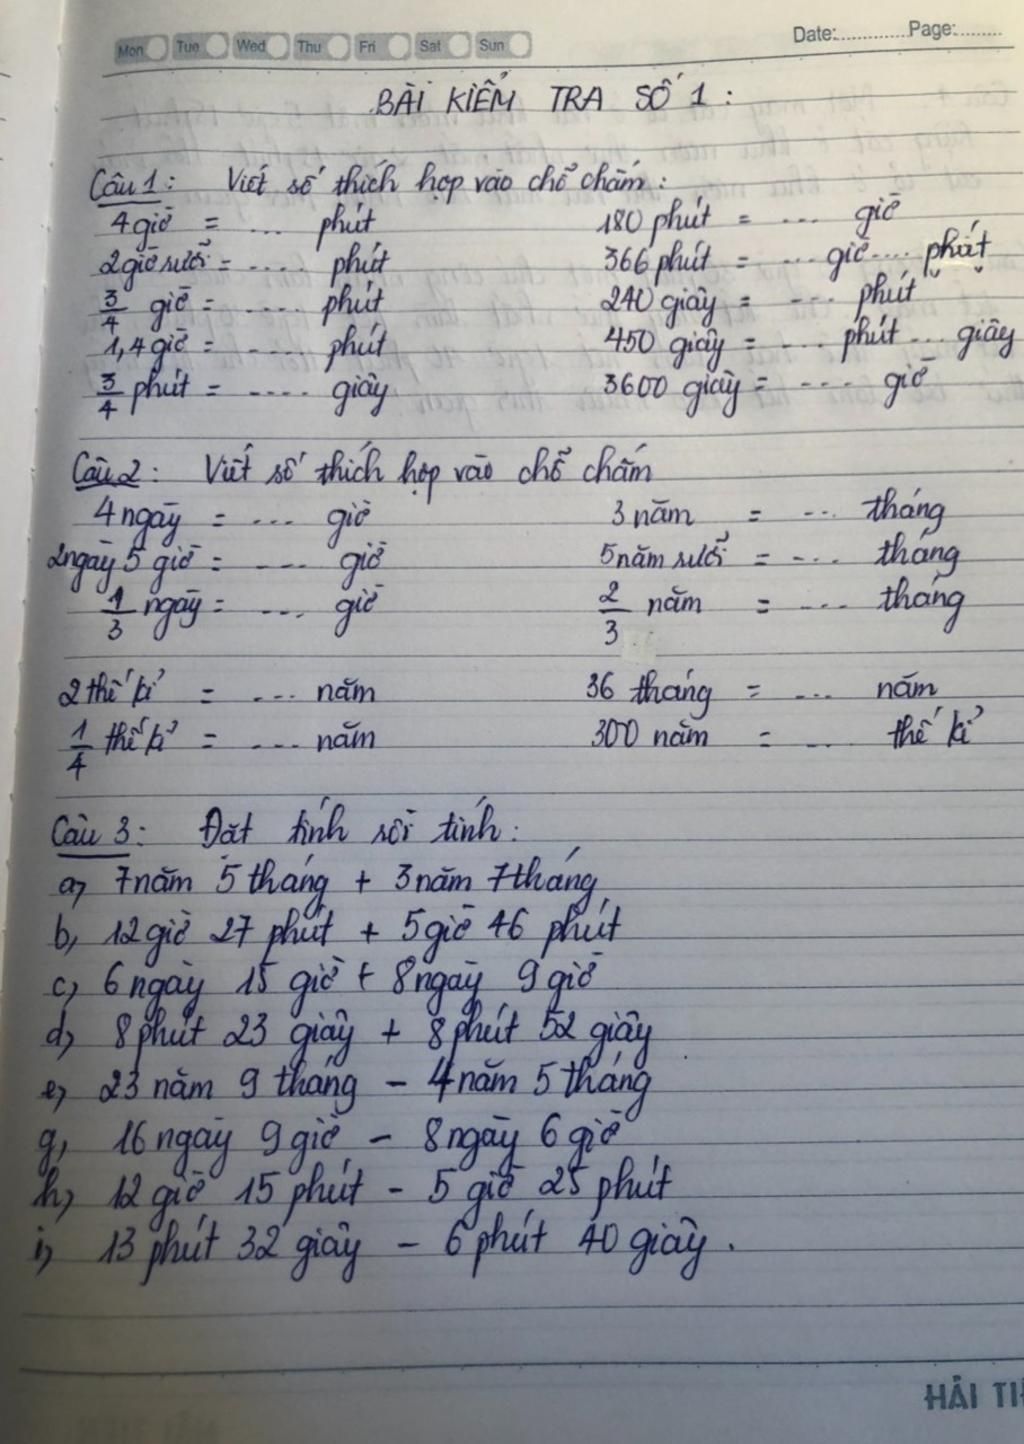 Mon Tue Wed Thu Fri Sat Sun Date:............ Page:.........
BÀI KIỂM TRA SỐ 1 :
Câu 1 : Viết số thích hợp vào chỗ chấm :
4 giờ = .... phút 180 phút = .... giờ
2 giờ rưỡi = ..... phút 366 phút = .... giờ .... phút
3/4 giờ = ..... phút 240 giây = .... phút
1,4 giờ = ..... phút 450 giây = .... phút ... giây
3/4 phút = ..... giây 3600 giây = .... giờ
Câu 2 : Viết số thích hợp vào chỗ chấm
4 ngày = .... giờ 3 năm = ... tháng
2 ngày 5 giờ = .... giờ 5 năm rưỡi = .... tháng
1/3 ngày = .... giờ 2/3 năm = .... tháng
2 thế kỉ = .... năm 36 tháng = .... năm
1/4 thế kỉ = .... năm 300 năm = .... thế kỉ
Câu 3 : Đặt tính rồi tính :
a, 7 năm 5 tháng + 3 năm 7 tháng
b, 12 giờ 27 phút + 5 giờ 46 phút
c, 6 ngày 15 giờ + 8 ngày 9 giờ
d, 8 phút 23 giây + 8 phút 52 giây
e, 23 năm 9 tháng - 4 năm 5 tháng
g, 16 ngày 9 giờ - 8 ngày 6 giờ
h, 12 giờ 15 phút - 5 giờ 25 phút
i, 13 phút 32 giây - 6 phút 40 giây .
HẢI TI